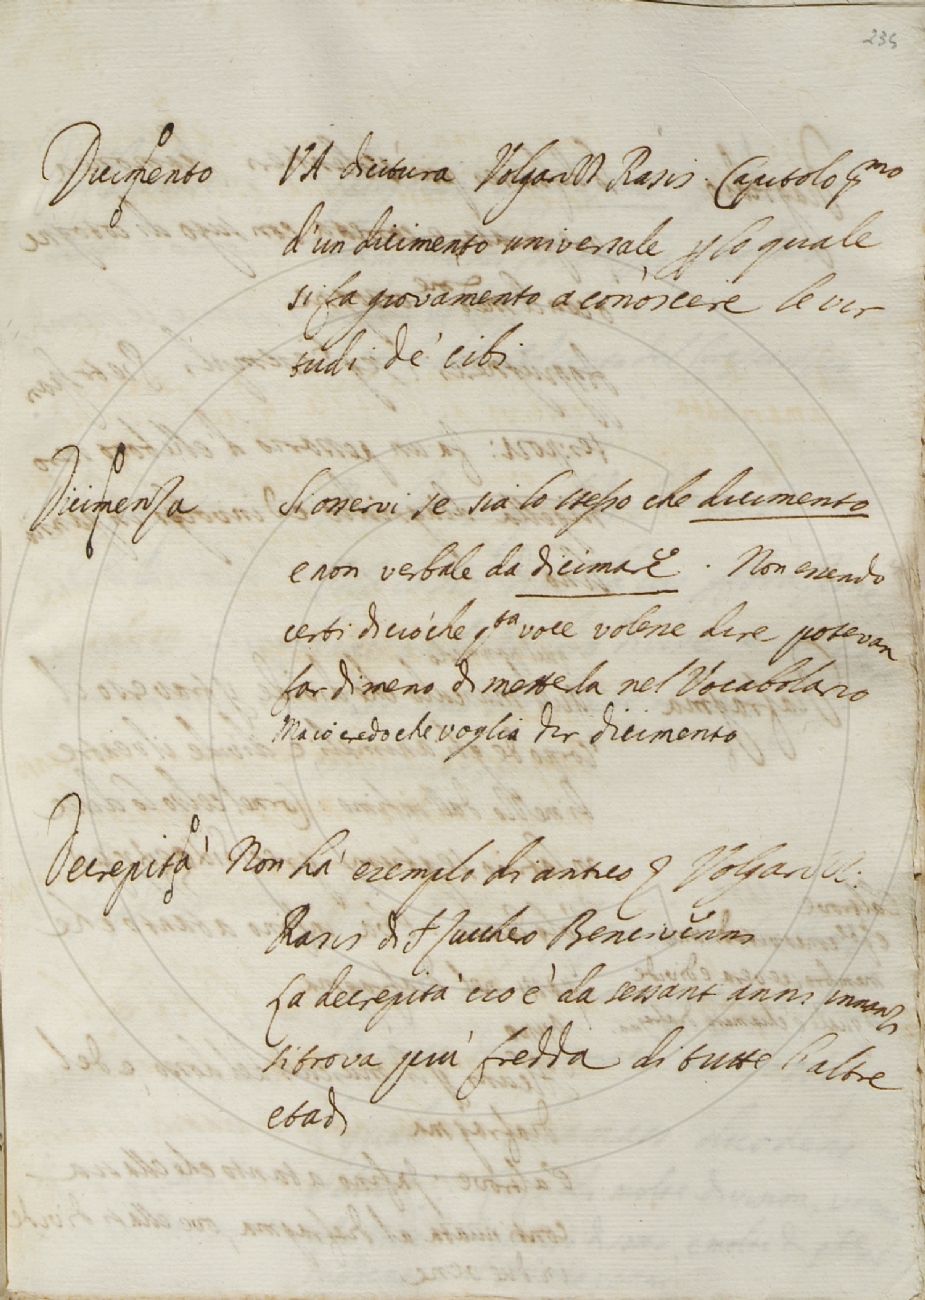 235
Dicimento VA dicitura Volgar Rasis. Capitolo pmo
d'un dicimento universale p lo quale
si fa giovamento a conoscere le vir
tudi de' cibi
Dicimenza Si osservi se sia lo stesso che dicimento
e non verbale da dicimare. Non essendo
certi di ciò che qta voce volesse dire potevan
far di meno di metterla nel Vocabolario
Ma io credo che voglia dir dicimento
Decrepità Non há esemplo di antico Volgar
Rasis di Succhero Bencivenni
La decrepità cio è da sessant anni innanzi
si trova più fredda di tutte l'altre
etadi